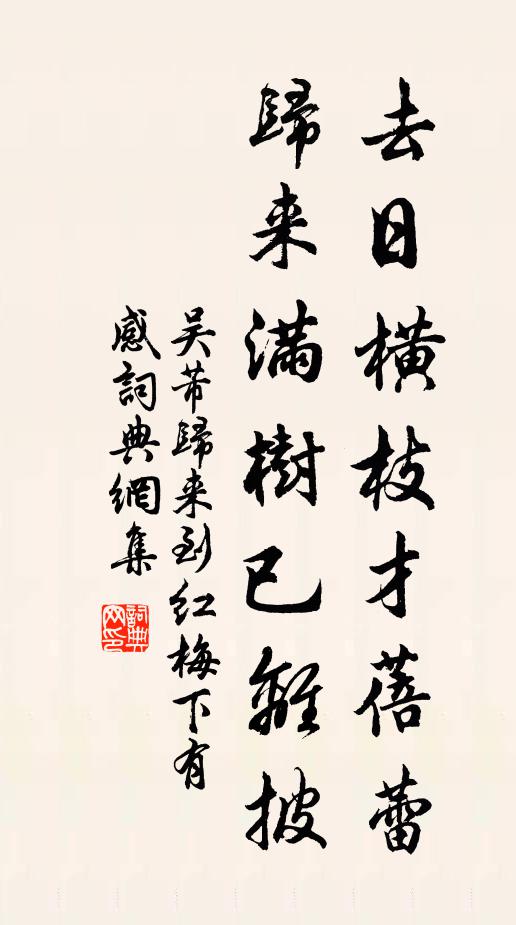 去日橫枝才蓓蕾
歸来滿樹已離披
吴芾歸来到红梅下有
感詞典網集
詞典網印